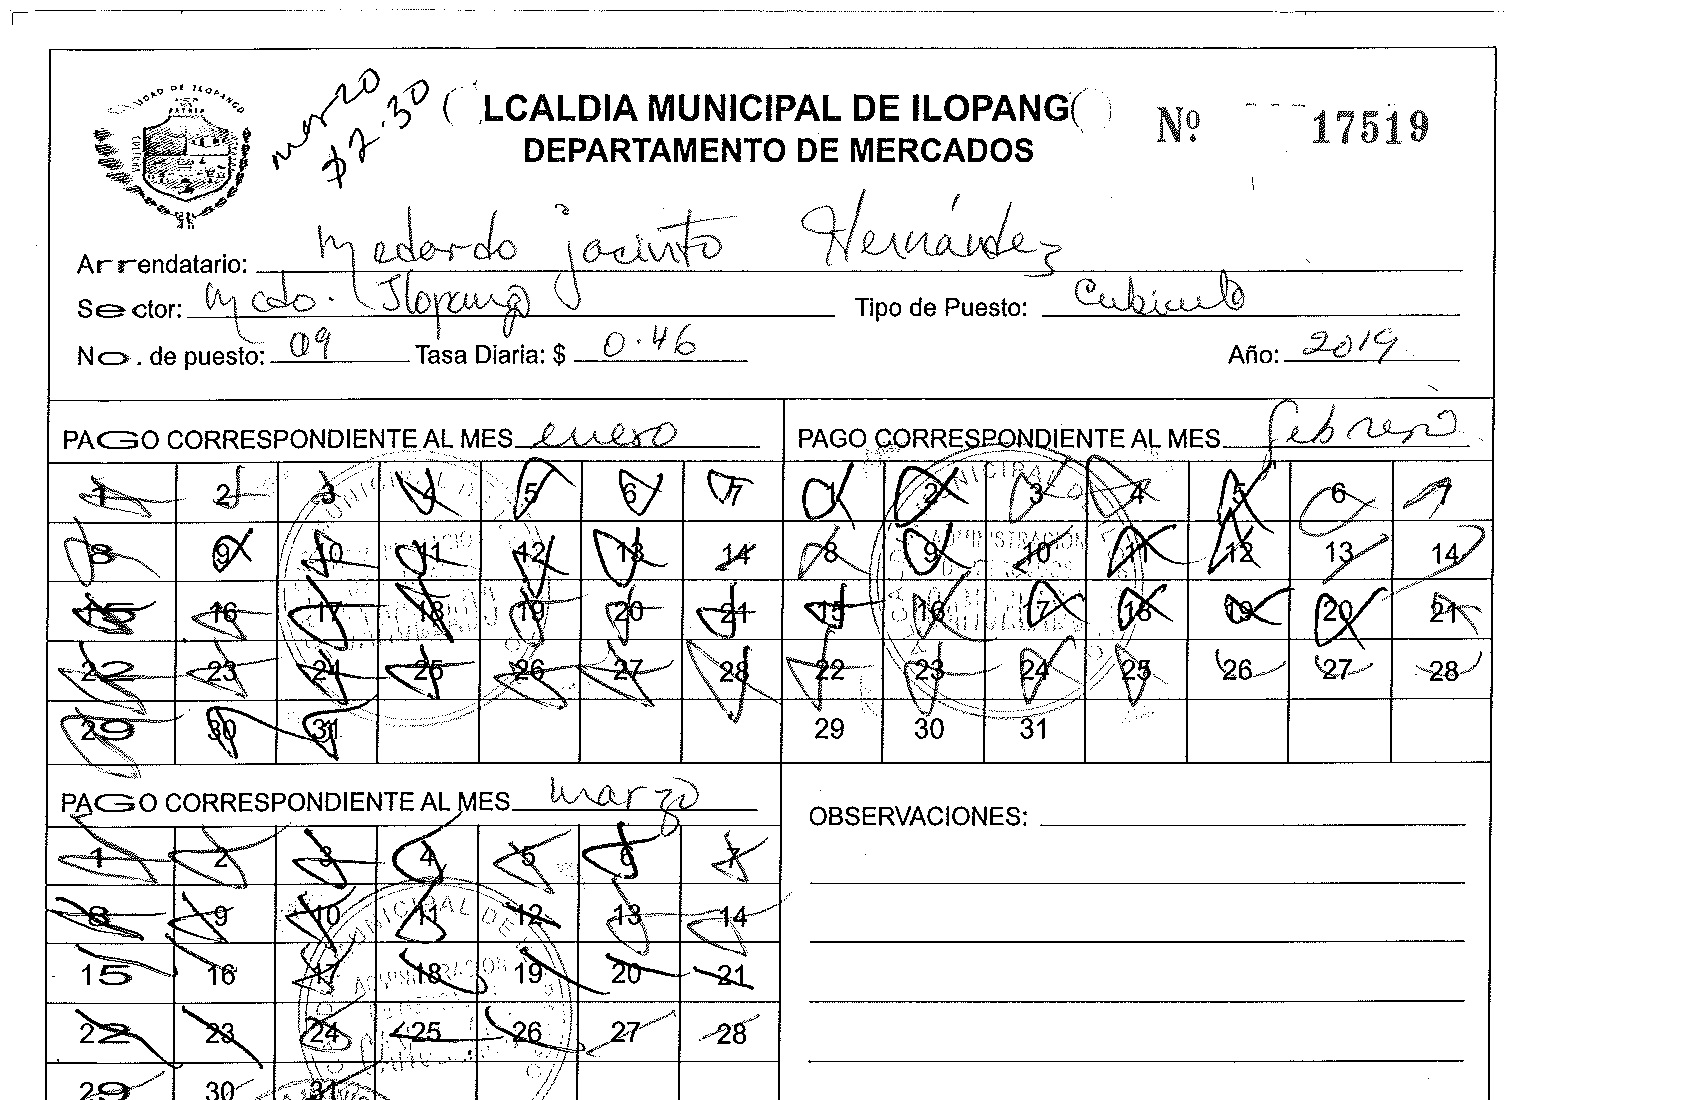 marzo
$2.30
ALCALDIA MUNICIPAL DE ILOPANGO
DEPARTAMENTO DE MERCADOS
Nº 17519
Arrendatario: Medardo jacinto Hernández
Sector: Mcdo. Ilopango Tipo de Puesto: Cubiculo
No. de puesto: 09 Tasa Diaria: $ 0.46 Año: 2019
PAGO CORRESPONDIENTE AL MES enero
1 2 3 4 5 6 7
8 9 10 11 12 13 14
15 16 17 18 19 20 21
22 23 24 25 26 27 28
29 30 31
PAGO CORRESPONDIENTE AL MES febrero
1 2 3 4 5 6 7
8 9 10 11 12 13 14
15 16 17 18 19 20 21
22 23 24 25 26 27 28
29 30 31
PAGO CORRESPONDIENTE AL MES marzo
1 2 3 4 5 6 7
8 9 10 11 12 13 14
15 16 17 18 19 20 21
22 23 24 25 26 27 28
29 30 31
OBSERVACIONES: